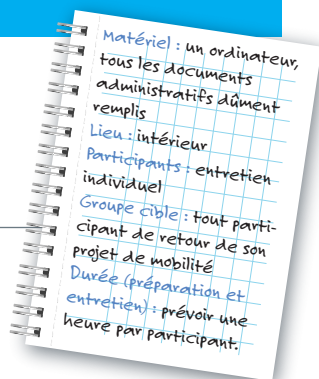 Matériel : un ordinateur,
tous les documents
administratifs dûment
remplis
Lieu : intérieur
Participants : entretien
individuel
Groupe cible : tout parti-
cipant de retour de son
projet de mobilité
Durée (préparation et
entretien) : prévoir une
heure par participant.